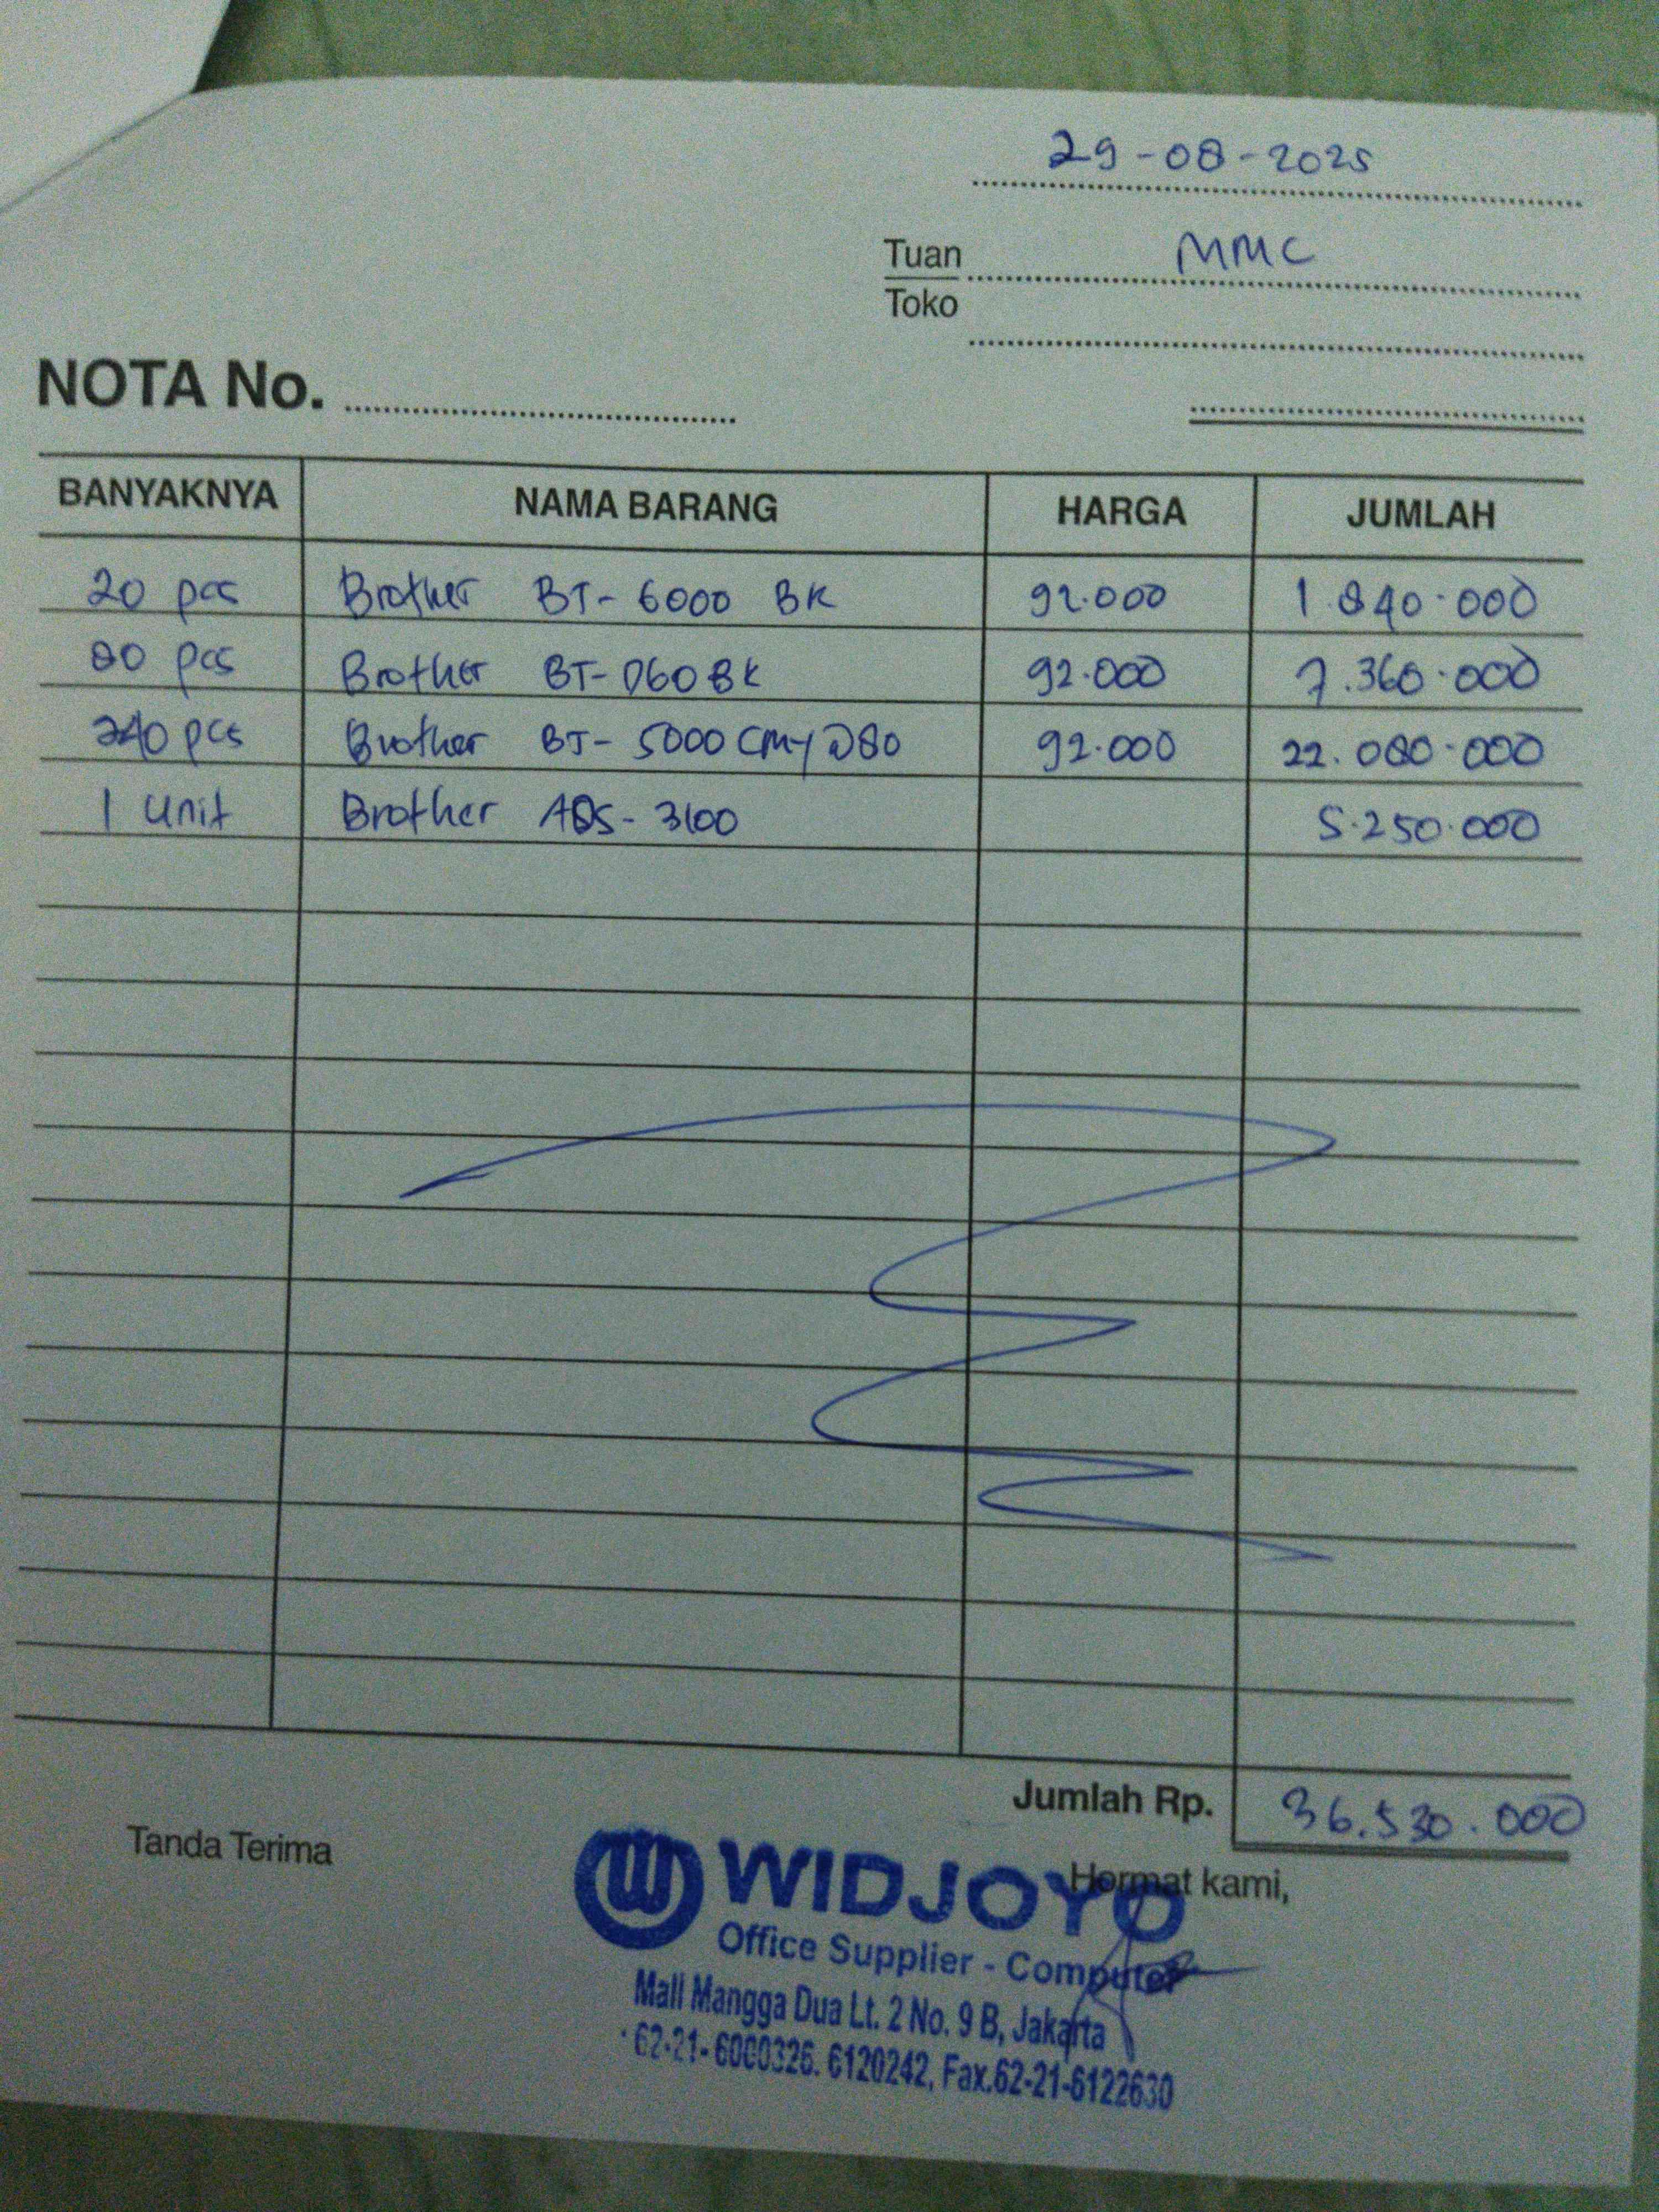 29-08-2025
Tuan MMC
Toko
NOTA No.
BANYAKNYA NAMA BARANG HARGA JUMLAH
20 pcs Brother BT-6000 BK 92.000 1.840.000
80 pcs Brother BT-D60BK 92.000 7.360.000
240 pcs Brother BT-5000 CMY @80 92.000 22.080.000
1 Unit Brother ADS-3100 5.250.000
Jumlah Rp. 36.530.000
Tanda Terima
Hormat kami,
WIDJOYO
Office Supplier - Computer
Mall Mangga Dua Lt. 2 No. 9 B, Jakarta
62-21-6000326. 6120242, Fax.62-21-6122630